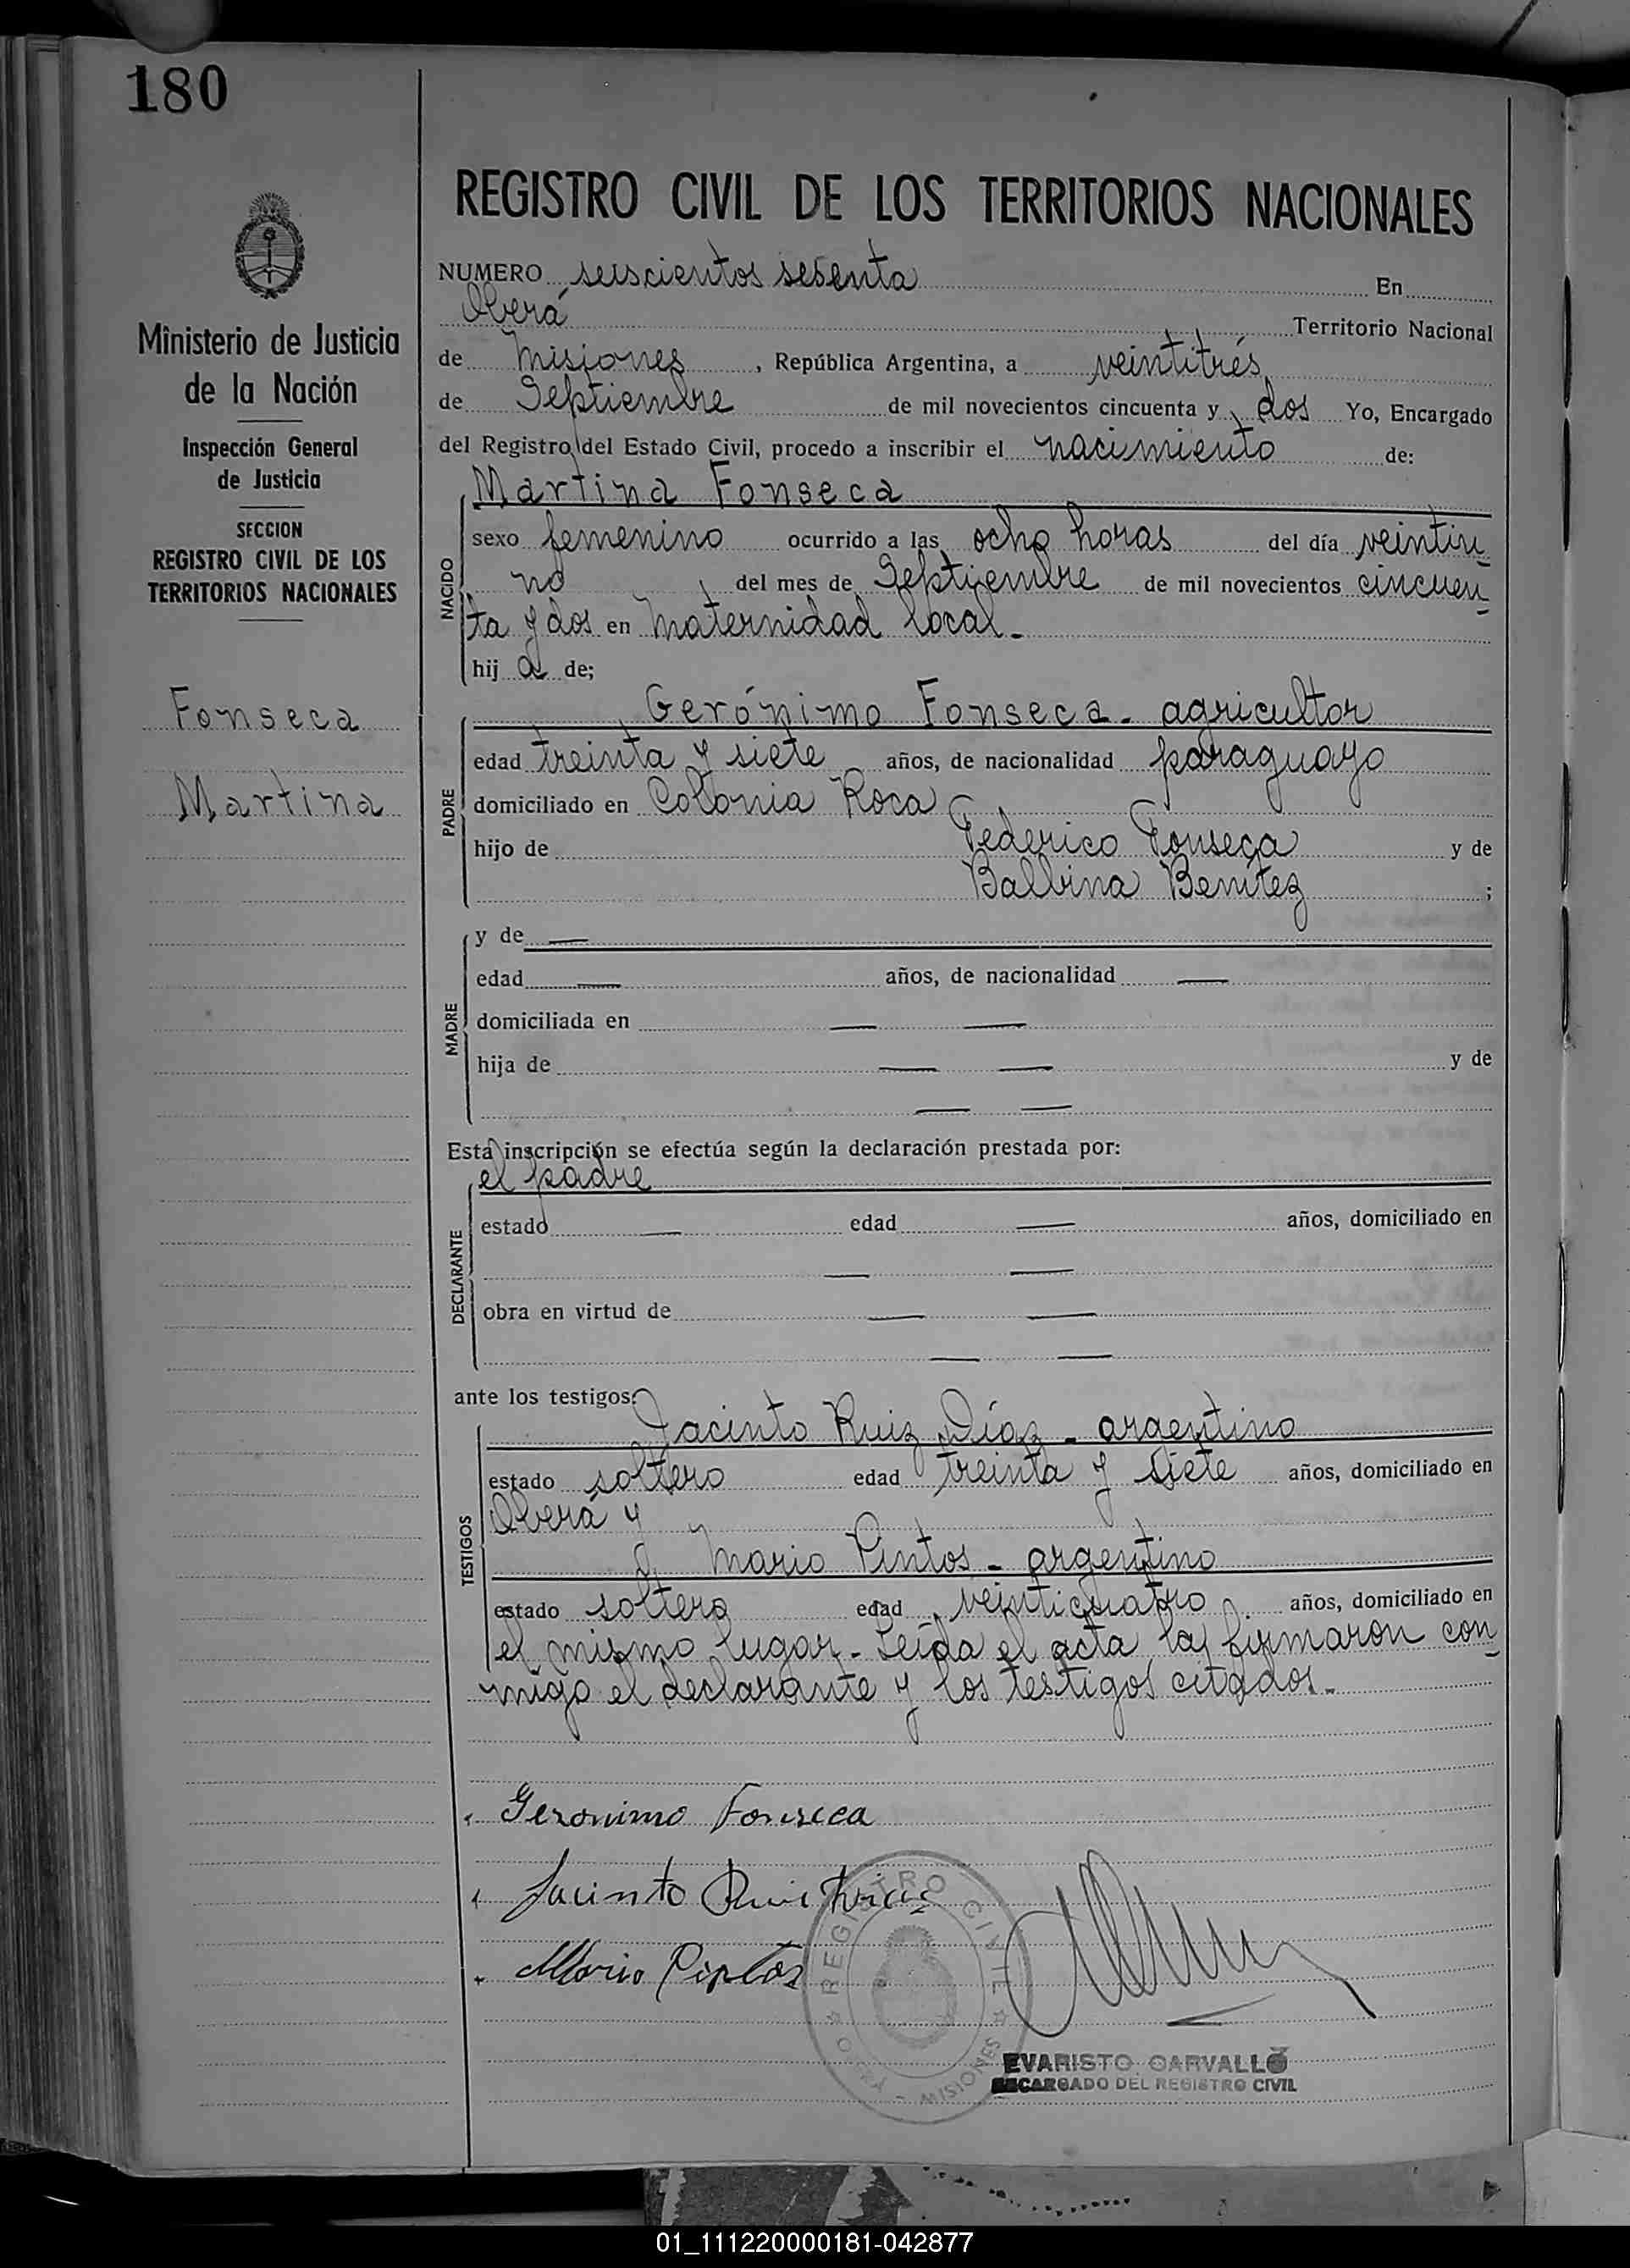 180
Ministerio de Justicia
de la Nación
Inspección General
de Justicia
SECCION
REGISTRO CIVIL DE LOS
TERRITORIOS NACIONALES
Fonseca
Martina
REGISTRO CIVIL DE LOS TERRITORIOS NACIONALES
NUMERO seiscientos sesenta En
Oberá Territorio Nacional
de Misiones, República Argentina, a veintitrés
de Septiembre de mil novecientos cincuenta y dos Yo, Encargado
del Registro del Estado Civil, procedo a inscribir el nacimiento de:
Martina Fonseca
NACIDO
sexo femenino ocurrido a las ocho horas del día veintiu
no del mes de Septiembre de mil novecientos cincuen
ta y dos en Maternidad local.-
hij a de;
Gerónimo Fonseca - agricultor
PADRE
edad treinta y siete años, de nacionalidad paraguayo
domiciliado en Colonia Roca
hijo de Federico Fonseca y de
Balbina Benítez ;
MADRE
y de —
edad — años, de nacionalidad —
domiciliada en — —
hija de — — y de
— —
Esta inscripción se efectúa según la declaración prestada por:
el padre
DECLARANTE
estado — edad — años, domiciliado en
— —
obra en virtud de — —
— —
ante los testigos:
Jacinto Ruiz Díaz - argentino
TESTIGOS
estado soltero edad treinta y siete años, domiciliado en
Oberá y
Mario Pintos - argentino
estado soltero edad veinticuatro años, domiciliado en
el mismo lugar.- Leída el acta la firmaron con
migo el declarante y los testigos citados.-
Geronimo Fonseca
Jacinto Ruis
Mario Pintos
REGISTRO CIVIL
OBERA - MISIONES
EVARISTO CARVALLO
ENCARGADO DEL REGISTRO CIVIL
01_111220000181-042877